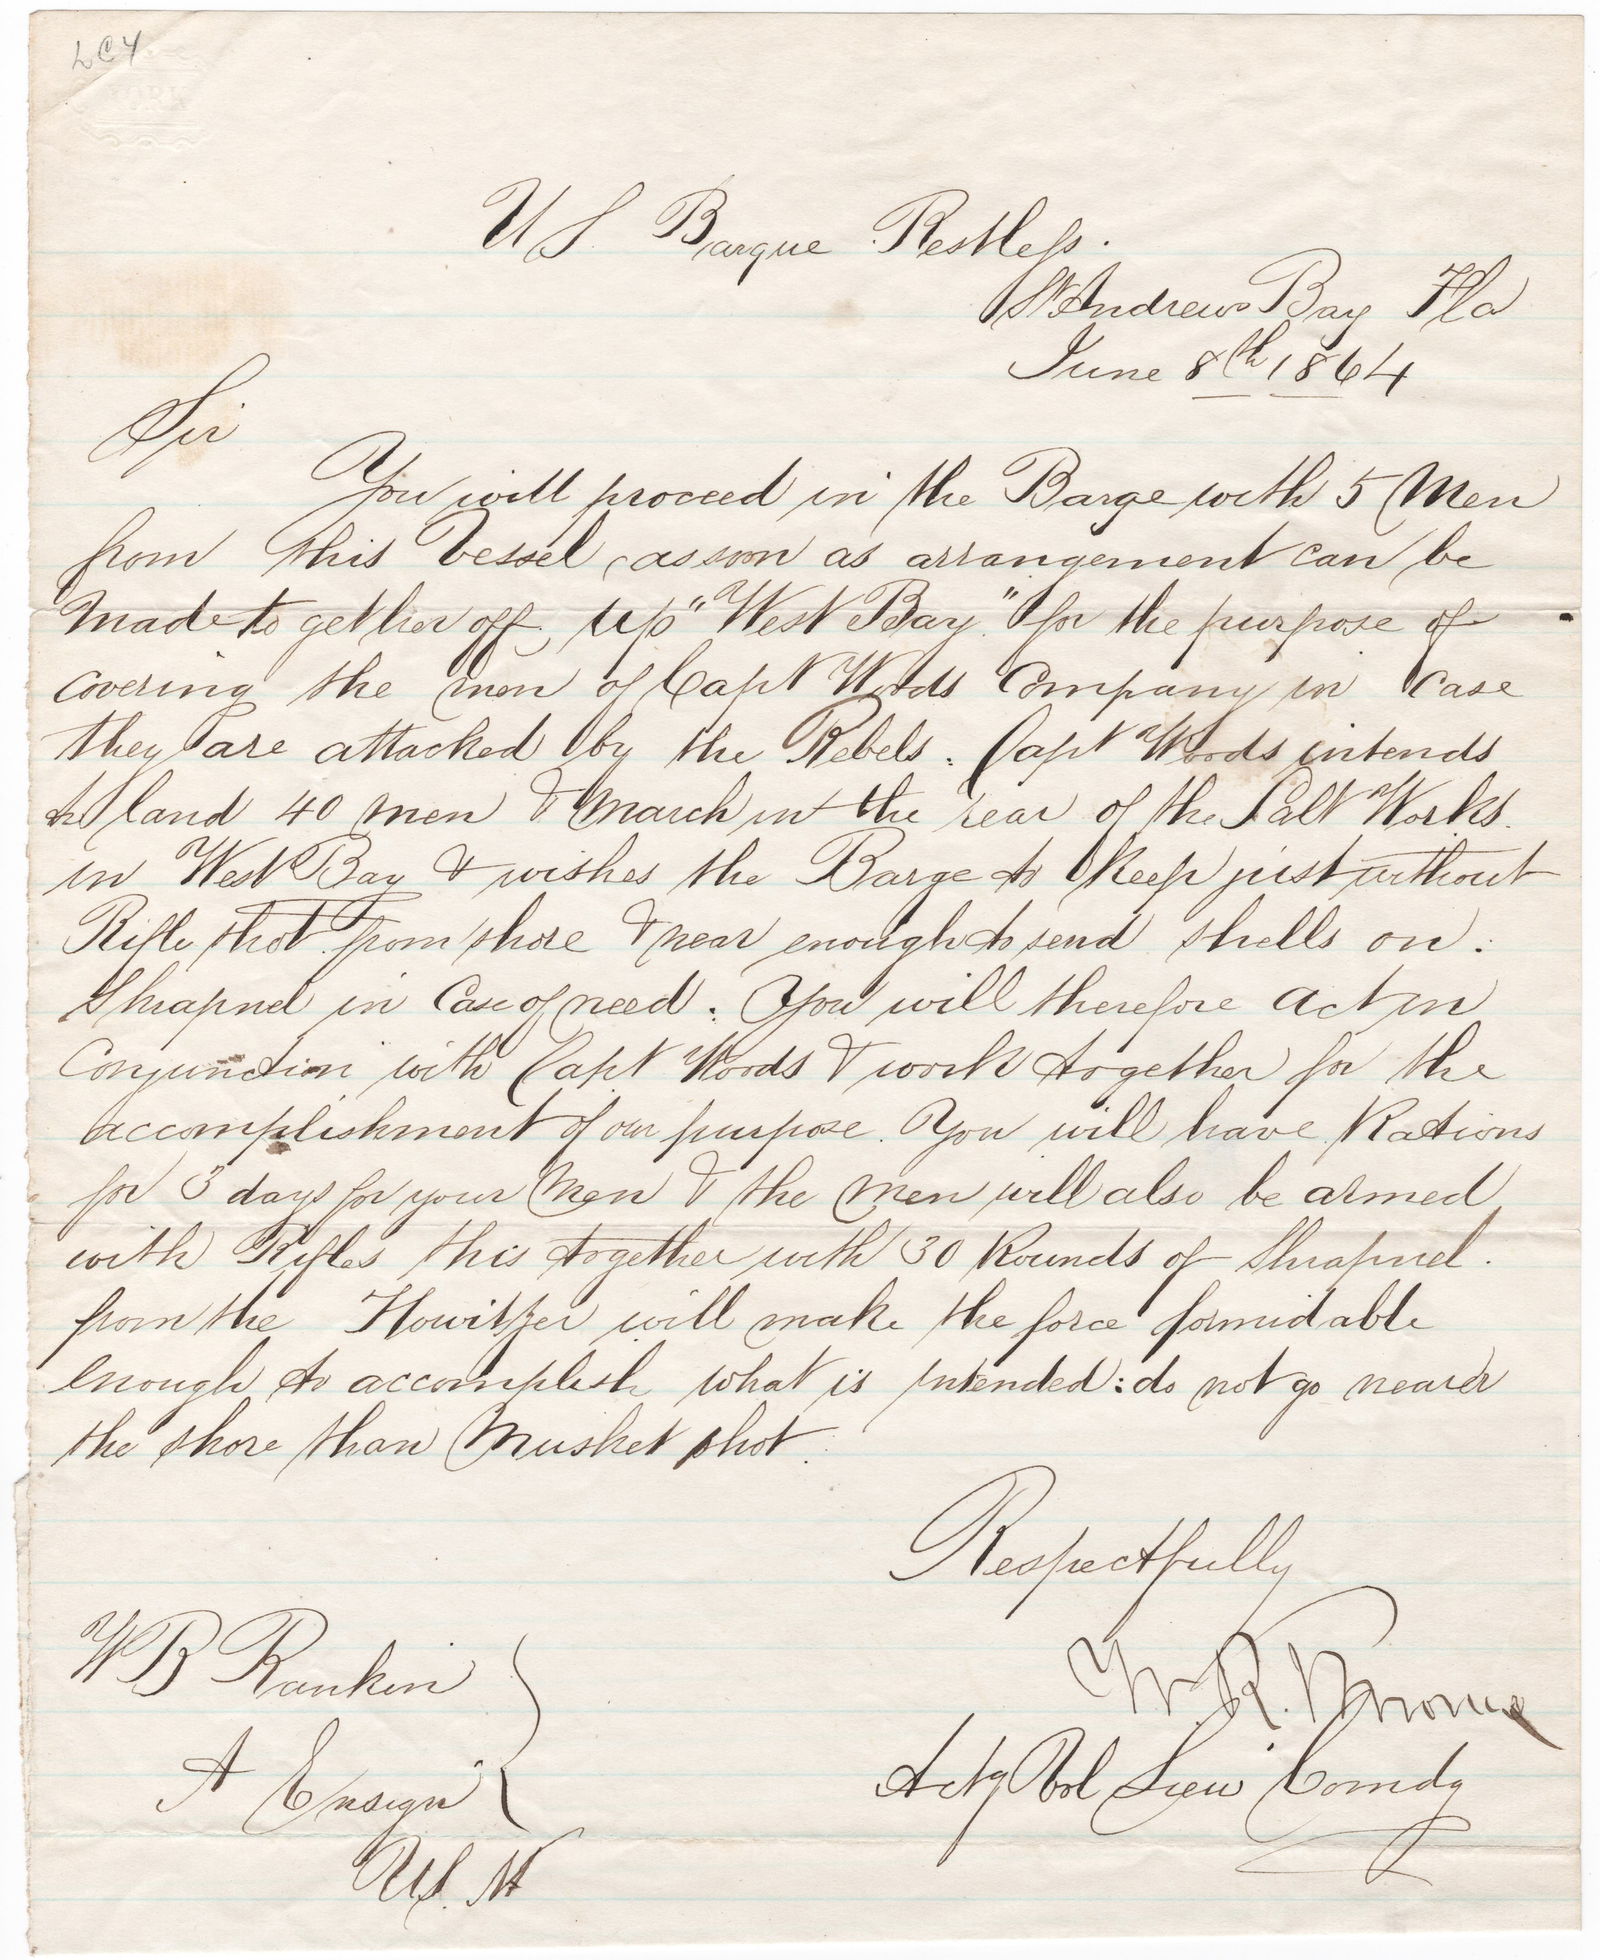 LC4
U S. Barque Restless.
St Andrews Bay Fla
June 8th 1864
Sir
You will proceed in the Barge with 5 Men
from this Vessel, as soon as arrangement can be
made to get her off, up "West Bay," for the purpose of
covering the men of Capt Woods Company in case
they are attacked by the Rebels. Capt Woods intends
to land 40 men & march in the rear of the Salt Works.
in West Bay & wishes the Barge to keep just without
Rifle shot from shore & near enough to send shells or.
Shrapnel in Case of need. You will therefore act in
Conjunction with Capt Woods & work together for the
accomplishment of our purpose. You will have Rations
for 3 days for your Men & the men will also be armed
with Rifles this together with 30 Rounds of Shrapnel.
from the Howitzer will make the force formidable
enough to accomplish what is intended: do not go nearer
the shore than Musket shot.
Respectfully
W. R. Browne
Actg Vol Lieu Comdg
W B Rankin
A Ensign
U.S. N